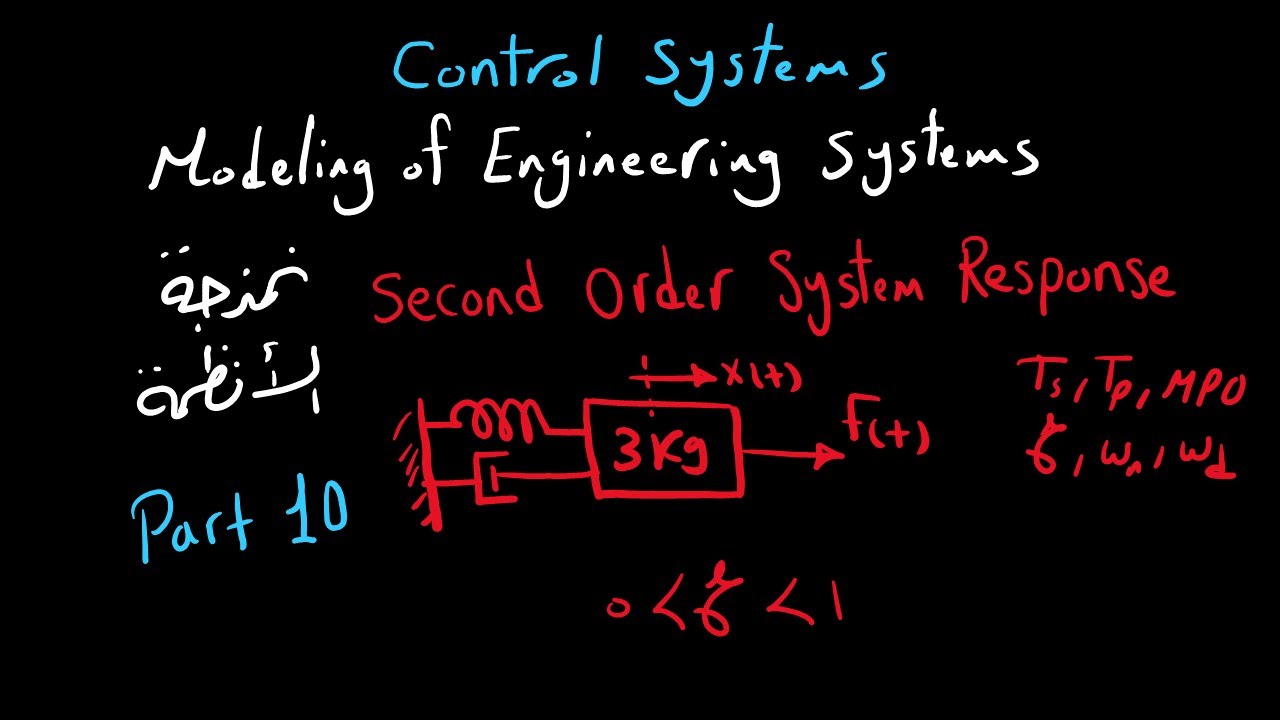 Control Systems
Modeling of Engineering Systems
نمذجة
الأنظمة
Second Order System Response
x(t)
3 Kg
F(t)
Ts, Tp, MPO
ξ, ωn, ωd
Part 10
0 < ξ < 1